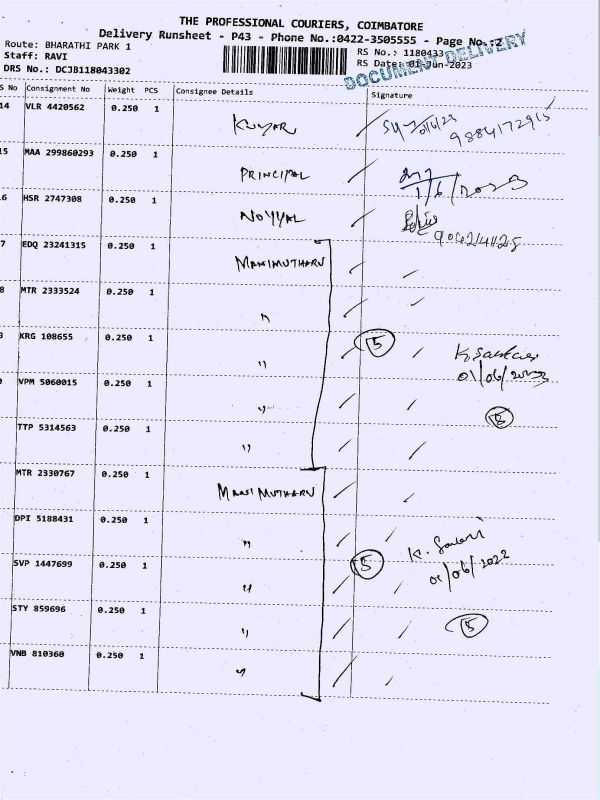 THE PROFESSIONAL COURIERS, COIMBATORE
Delivery Runsheet - P43 - Phone No.:0422-3505555 - Page No.:2
Route: BHARATHI PARK 1
RS No.: 1180433
Staff: RAVI
RS Date: 01-Jun-2023
DRS No.: DCJB118043302
DOCUMENT DELIVERY
S No Consignment No Weight PCS Consignee Details Signature
14 VLR 4420562 0.250 1 KUMAR
9884172915
15 MAA 299860293 0.250 1 PRINCIPAL
1/6/2023
6 HSR 2747308 0.250 1 NOYYAL
7 EDQ 23241315 0.250 1 MANIMUTHARU
8 MTR 2333524 0.250 1 "
9 KRG 108655 0.250 1 " 5
01/06/2023
0 VPM 5060015 0.250 1 " 5
TTP 5314563 0.250 1 "
MTR 2330767 0.250 1 MANIMUTHARU
DPI 5188431 0.250 1 "
SVP 1447699 0.250 1 " 5
01/06/2022
STY 859696 0.250 1 " 5
VNB 810360 0.250 1 "